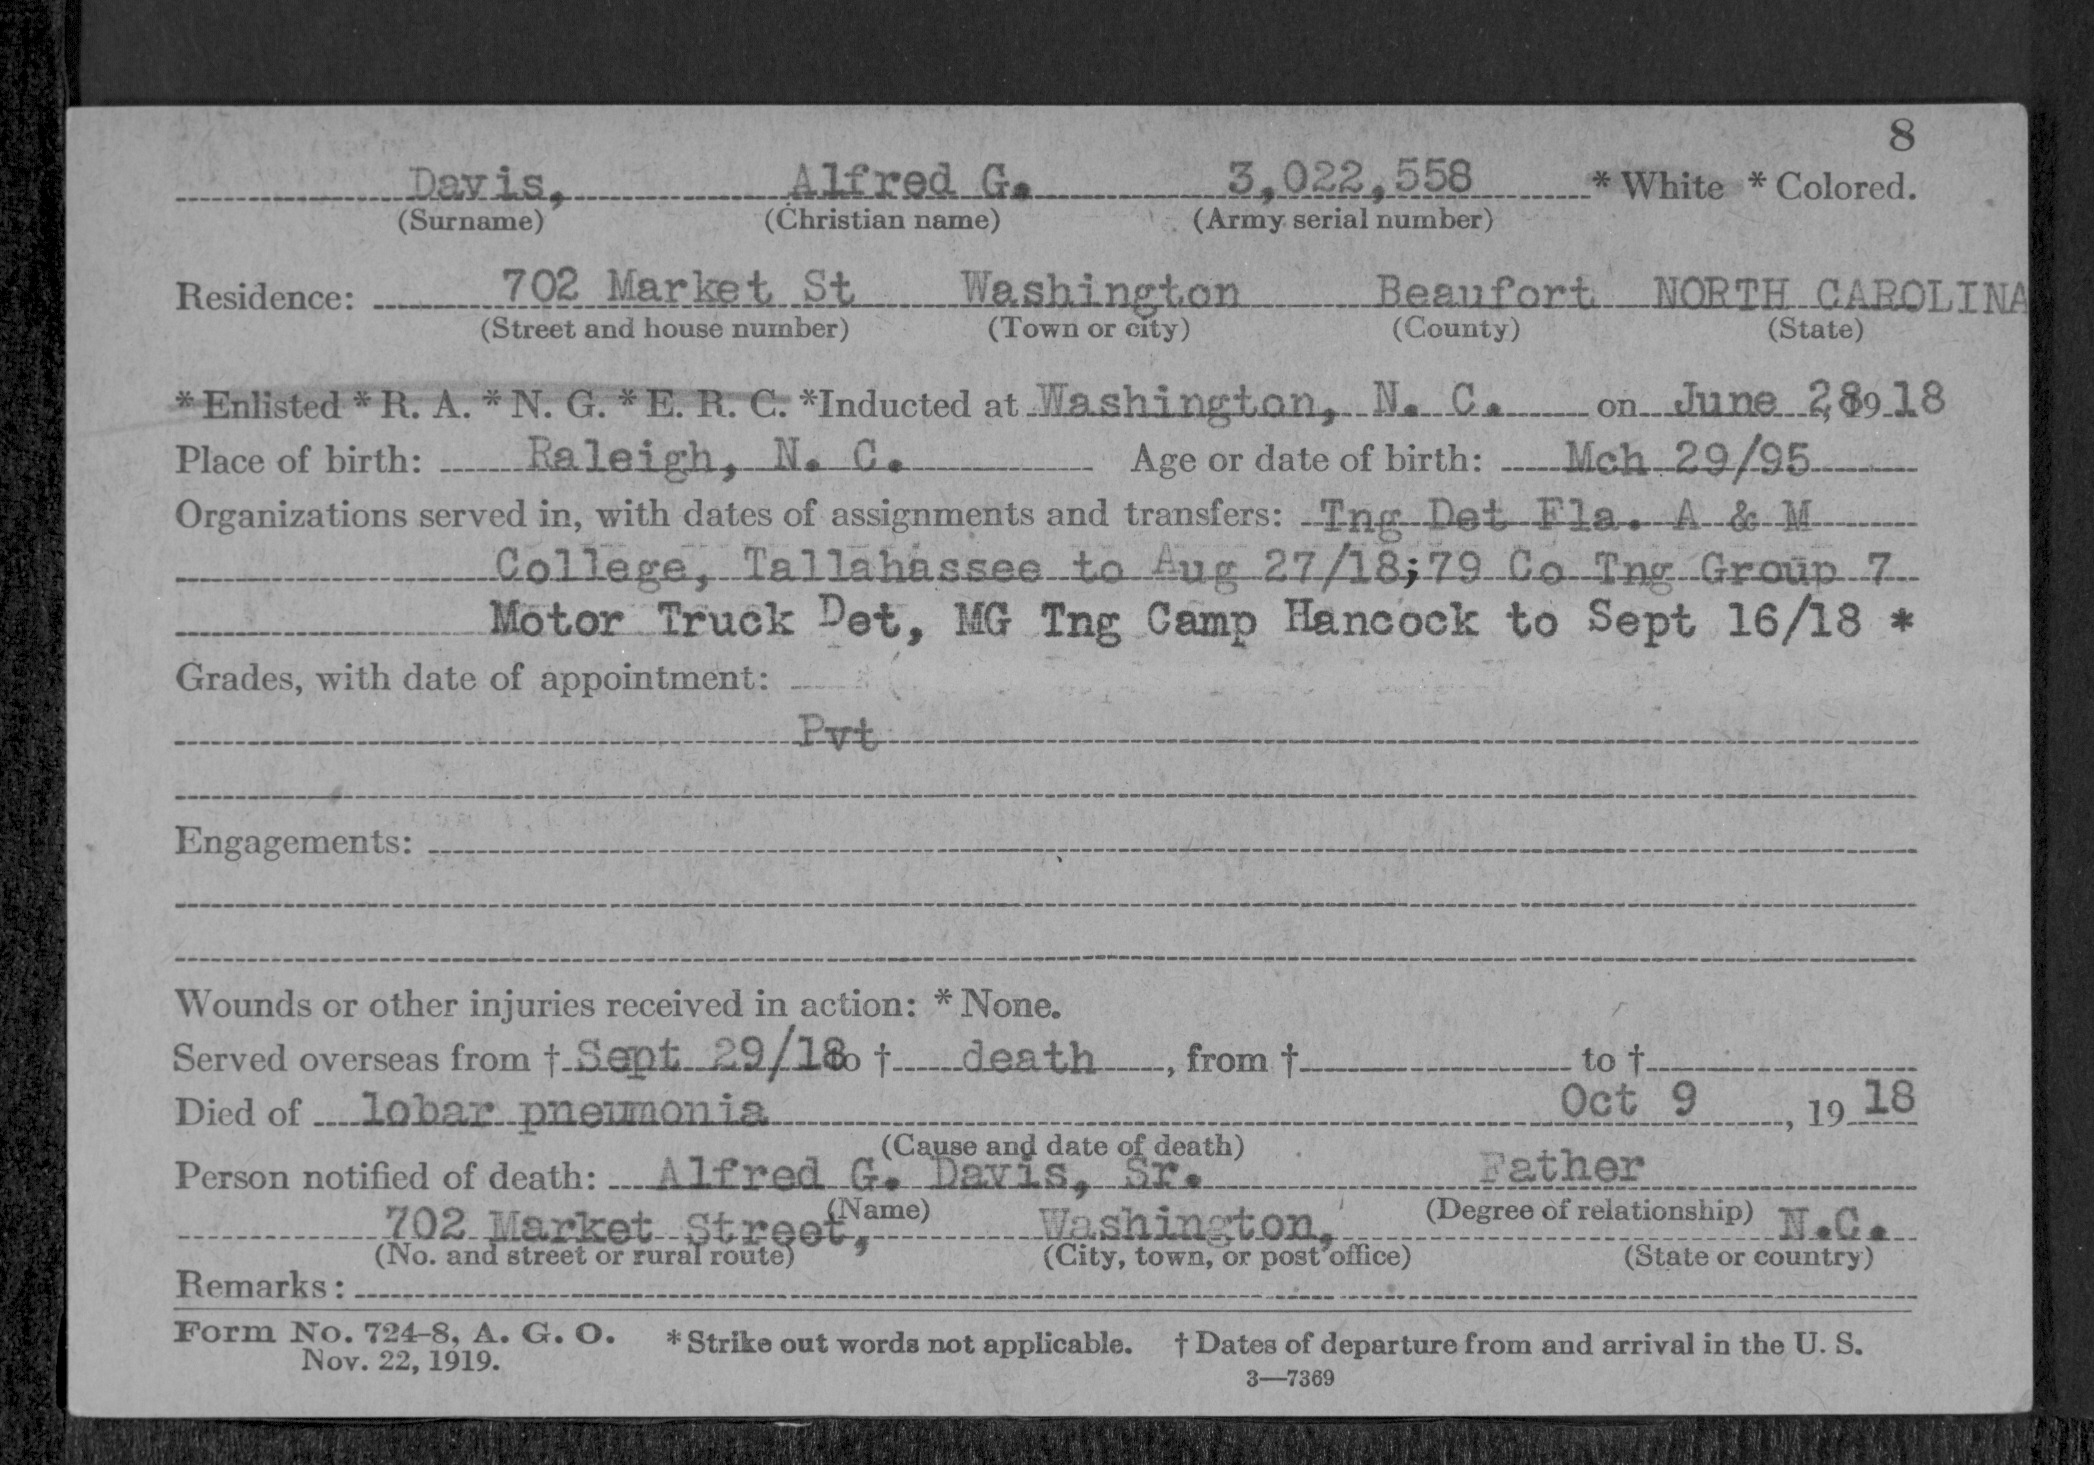 8
Davis, Alfred G. 3,022,558 * White * Colored.
(Surname) (Christian name) (Army serial number)
Residence: 702 Market St Washington Beaufort NORTH CAROLINA
(Street and house number) (Town or city) (County) (State)
* Enlisted * R. A. * N. G. * E. R. C. *Inducted at Washington, N. C. on June 28, 1918
Place of birth: Raleigh, N. C. Age or date of birth: Mch 29/95
Organizations served in, with dates of assignments and transfers: Tng Det Fla. A & M
College, Tallahassee to Aug 27/18;79 Co Tng Group 7
Motor Truck Det, MG Tng Camp Hancock to Sept 16/18 *
Grades, with date of appointment:
Pvt
Engagements:
Wounds or other injuries received in action: * None.
Served overseas from † Sept 29/18 to † death, from † to †
Died of lobar pneumonia Oct 9, 19 18
(Cause and date of death)
Person notified of death: Alfred G. Davis, Sr. Father
(Name) (Degree of relationship)
702 Market Street, Washington, N.C.
(No. and street or rural route) (City, town, or post office) (State or country)
Remarks:
Form No. 724-8, A. G. O. * Strike out words not applicable. † Dates of departure from and arrival in the U. S.
Nov. 22, 1919.
3—7369